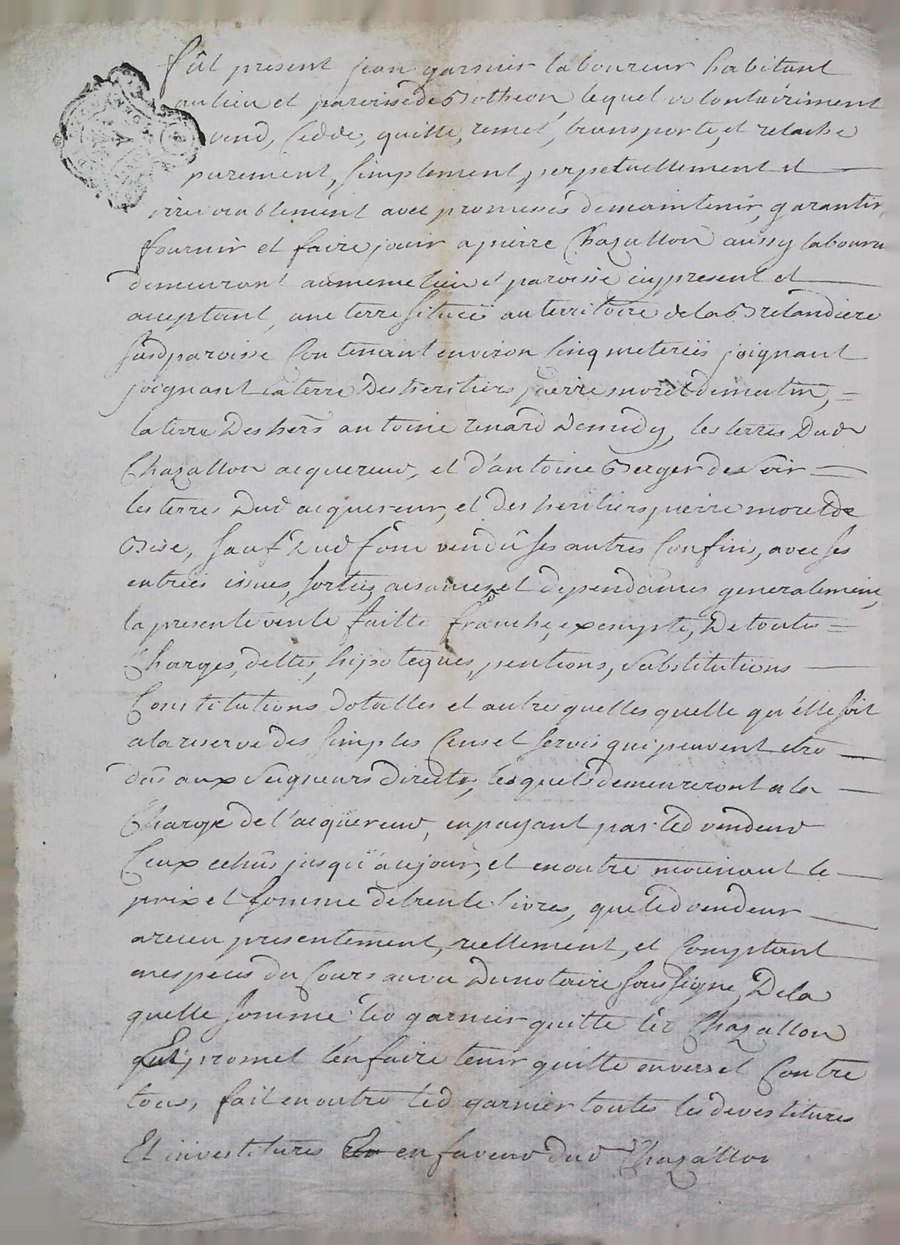 fût present jean garnier laboureur habitant
au lieu et paroisse de Botheon, lequel volontairement
vend, Cedde, quitte, remet, transporte, et relache
purement, simplement, perpetuellement et
irrevocablement avec promesses de maintenir, garantir,
fournir et faire jouir a pierre Chazallon aussy laboureur
demeurant au meme lieu et paroisse icy present et
aceptant, une terre située au territoire de la Bretandiere
susd paroisse Contenant environ Cinq meteriés joignant
joignant la terre des heritiers pierre moret de matin,
la terre des hers antoine renard de midy, les terres dud
Chazallon acquereur, et d'antoine Berger de soir
les terres dud acquereur, et des heritiers pierre moret de
Bise, sauf dud fond vendû ses autres Confins, avec ses
entrées issues, sorties, aisances et dependances generalement,
la presente vente faitte franche, exempte, de toutes
Charges, dettes, hipoteques, pentions, substitutions
Constitutions dotalles et autre quelles quelle qu'elle soit
a la reserve des simples Cens et servis qui peuvent etre
dûs aux seigneurs directs, lesquels demeureront a la
Charge de l'acquereur, en payant par led vendeur
Ceux echûs jusqu'aujour, et en outre moienant le
prix et somme de trente livres, que led vendeur
a receu presentement, reellement, et Comptant
en especes du Cours au vu du notaire soussigné, de la
quelle somme led garnier quitte led Chazallon
Et promet l'en faire tenir quitte envers et Contre
tous, fait en outre led garnier toutes les devestitures
Et investitures en faveur dud Chazallon